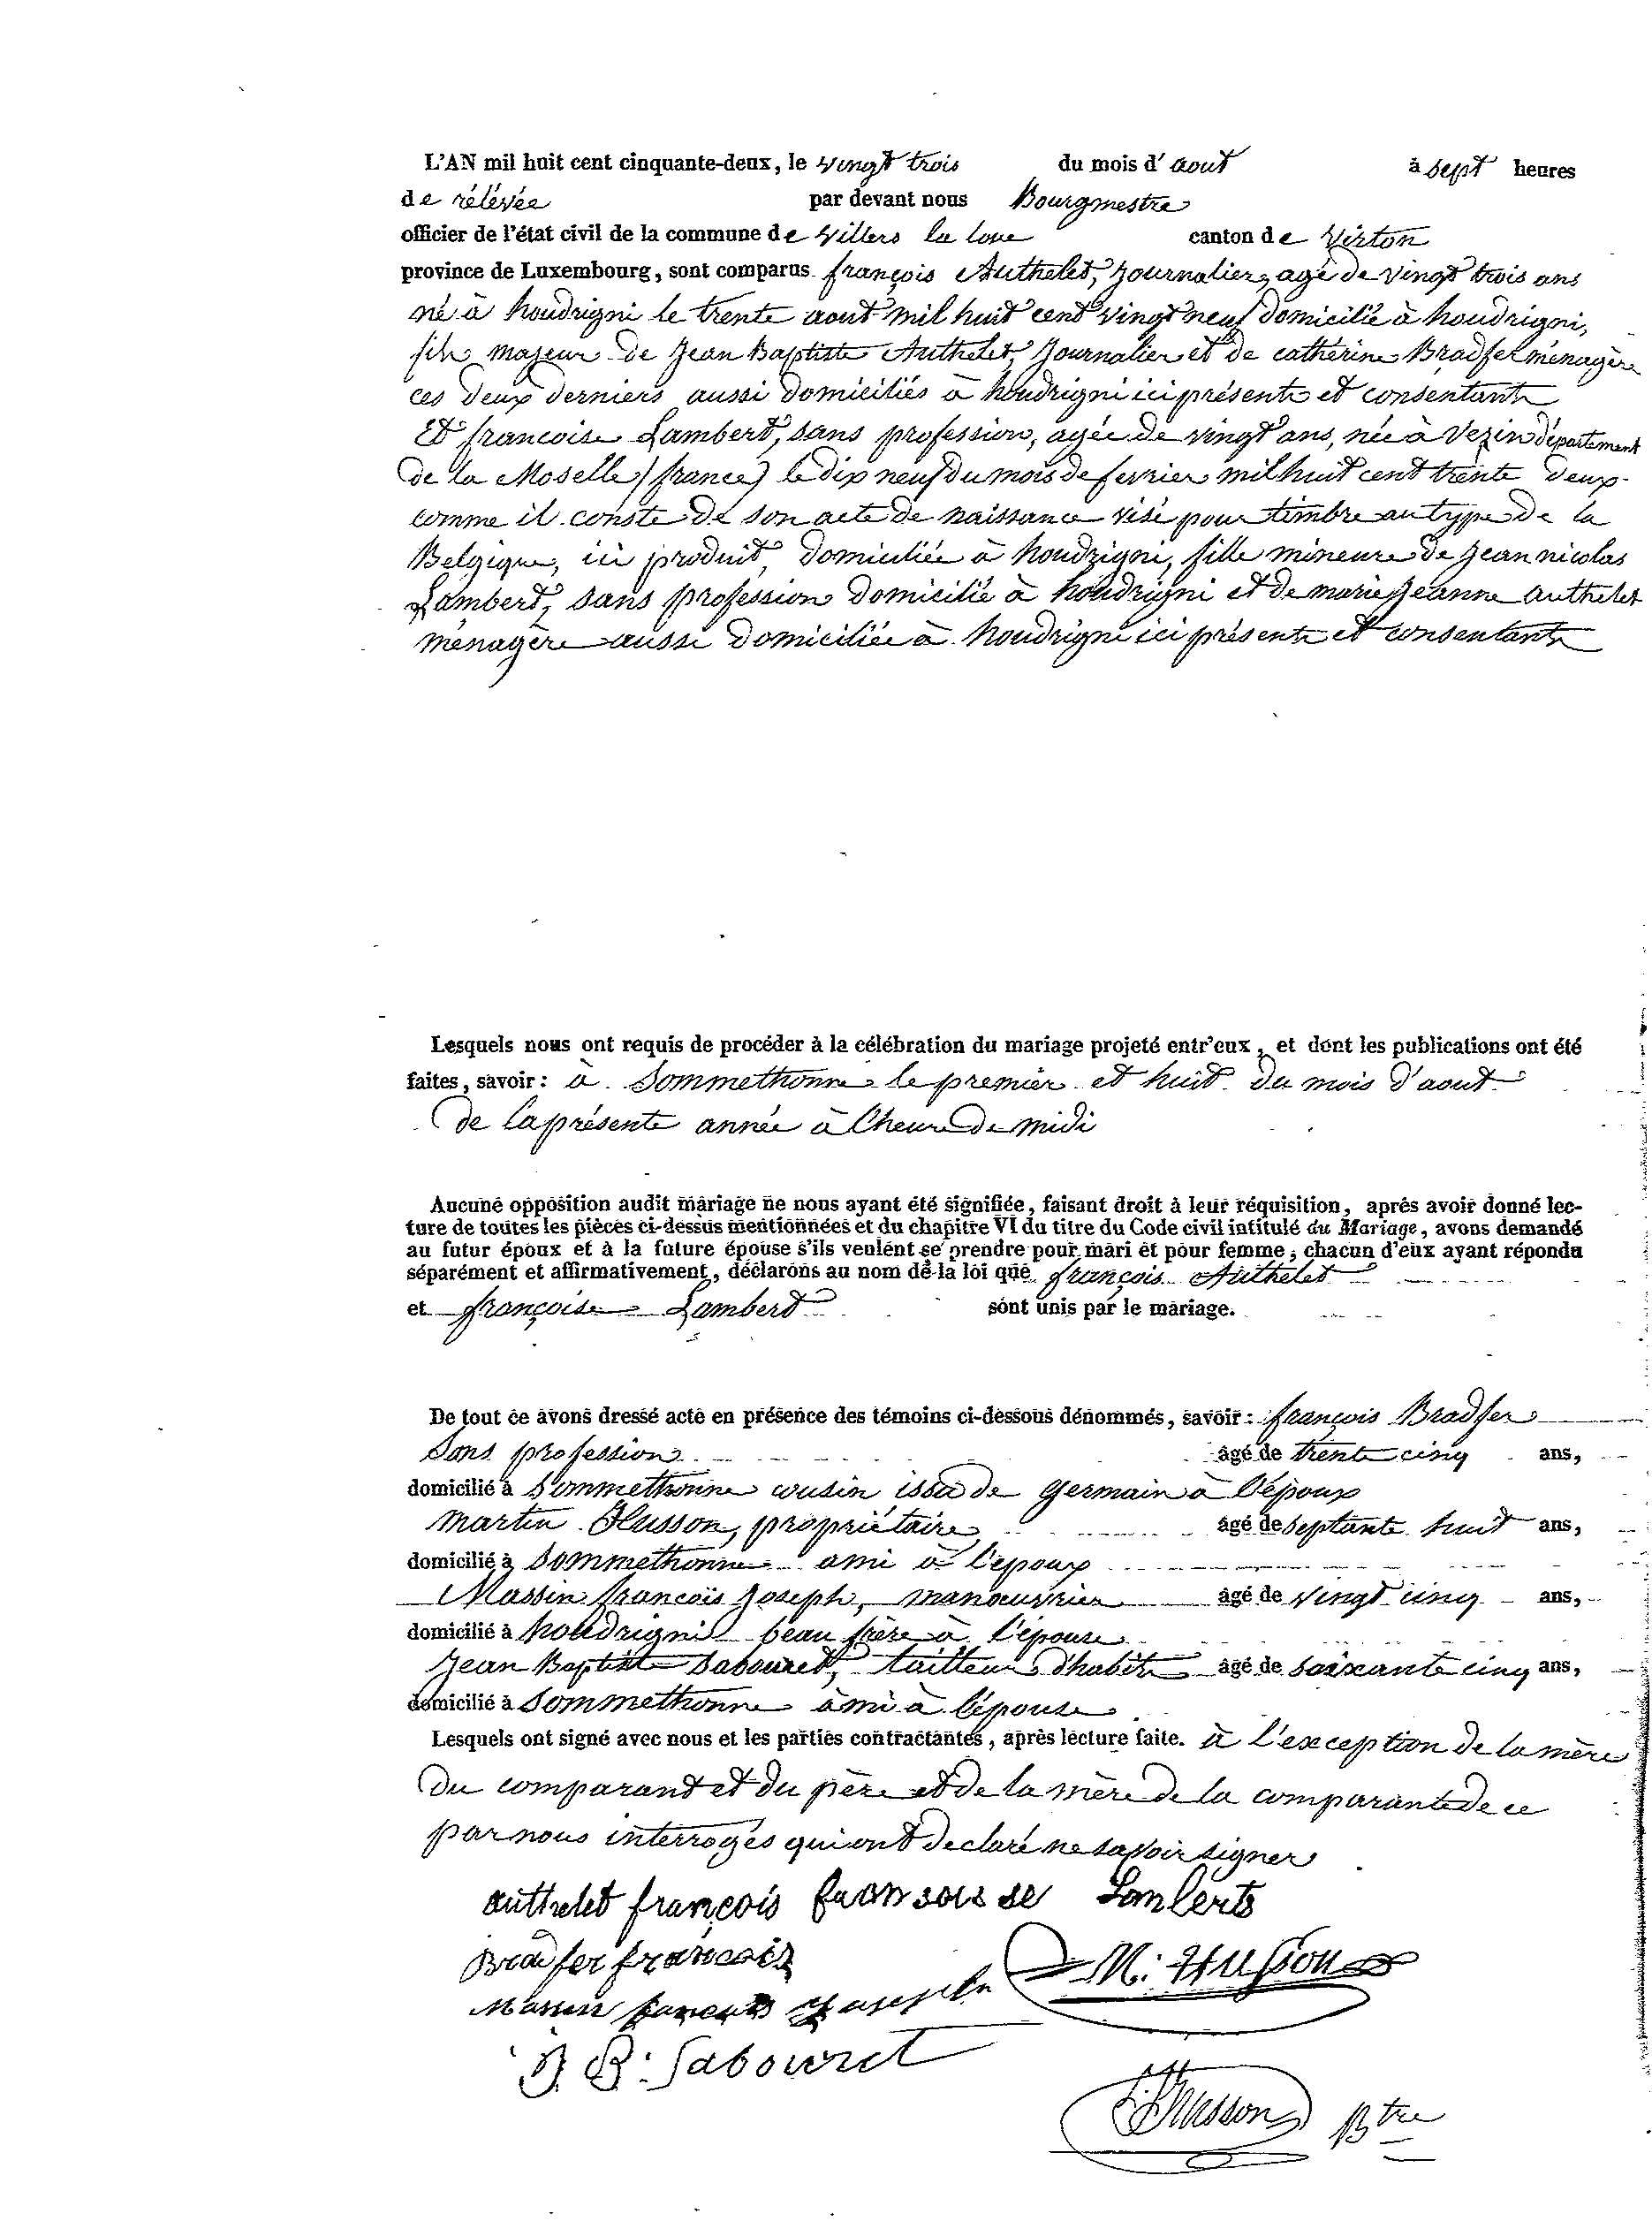 L'AN mil huit cent cinquante-deux, le vingt trois du mois d'aout à sept heures
de rélévée par devant nous Bourgmestre
officier de l'état civil de la commune de Villers la loue canton de Virton
province de Luxembourg, sont comparus françois Authelet, Journalier, agé de vingt trois ans
né à houdrigni le trente aout mil huit cent vingt neuf domicilié à houdrigni,
fils majeur de Jean Baptiste Authelet, Journalier et de catherine Bradfer ménagère
ces deux derniers aussi domiciliés à houdrigni ici présents et consentants
Et francoise Lambert, sans profession, agée de vingt ans, née à Vezin département
de la Moselle (france) le dix neuf du mois de fevrier mil huit cent trente deux
comme il conste de son acte de naissance visé pour timbre au type de la
Belgique, ici produit, domiciliée à houdrigni, fille mineure de Jean nicolas
Lambert, sans profession domicilié à houdrigni et de marie Jeanne Authelet
ménagère aussi domiciliée à houdrigni ici présents et consentants
Lesquels nous ont requis de procéder à la célébration du mariage projeté entr'eux, et dont les publications ont été
faites, savoir: à Sommethonne le premier et huit du mois d'aout
de la présente année à l'heure de midi
Aucune opposition audit mariage ne nous ayant été signifiée, faisant droit à leur réquisition, après avoir donné lec-
ture de toutes les pièces ci-dessus mentionnées et du chapitre VI du titre du Code civil intitulé du Mariage, avons demandé
au futur époux et à la future épouse s'ils veulent se prendre pour mari et pour femme; chacun d'eux ayant répondu
séparément et affirmativement, déclarons au nom de la loi que françois Authelet
et françoise Lambert sont unis par le mariage.
De tout ce avons dressé acte en présence des témoins ci-dessous dénommés, savoir: françois Bradfer
Sans profession âgé de trente cinq ans,
domicilié à Sommethonne cousin issu de germain à l'époux
martin Husson, propriétaire, âgé de septante huit ans,
domicilié à Sommethonne ami à l'époux
Massin françois Joseph, manoeuvrier âgé de vingt cinq ans,
domicilié à houdrigni beau frère à l'épouse
Jean Baptiste Sabouret, tailleur d'habits âgé de soixante cinq ans,
domicilié à Sommethonne ami à l'épouse
Lesquels ont signé avec nous et les parties contractantes, après lecture faite. à l'exception de la mère
du comparant et du père et de la mère de la comparante de ce
par nous interrogés qui ont declaré ne savoir signer
authelet françois fransoisse Lamberts
Bradfer françois
M. Husson
Massin francois joseph
J. B. Sabouret
Husson Btre